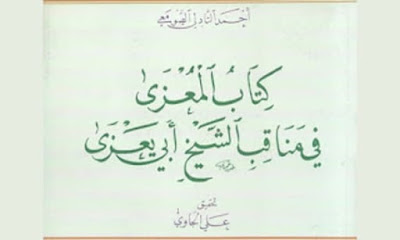 أحمد التادلي الصومعي
كِتَابُ المُعْزَىٰ
فِي مَنَاقِبِ الشَّيْخِ أَبِي يَعْزَىٰ
تحقيق
علي الجاوي